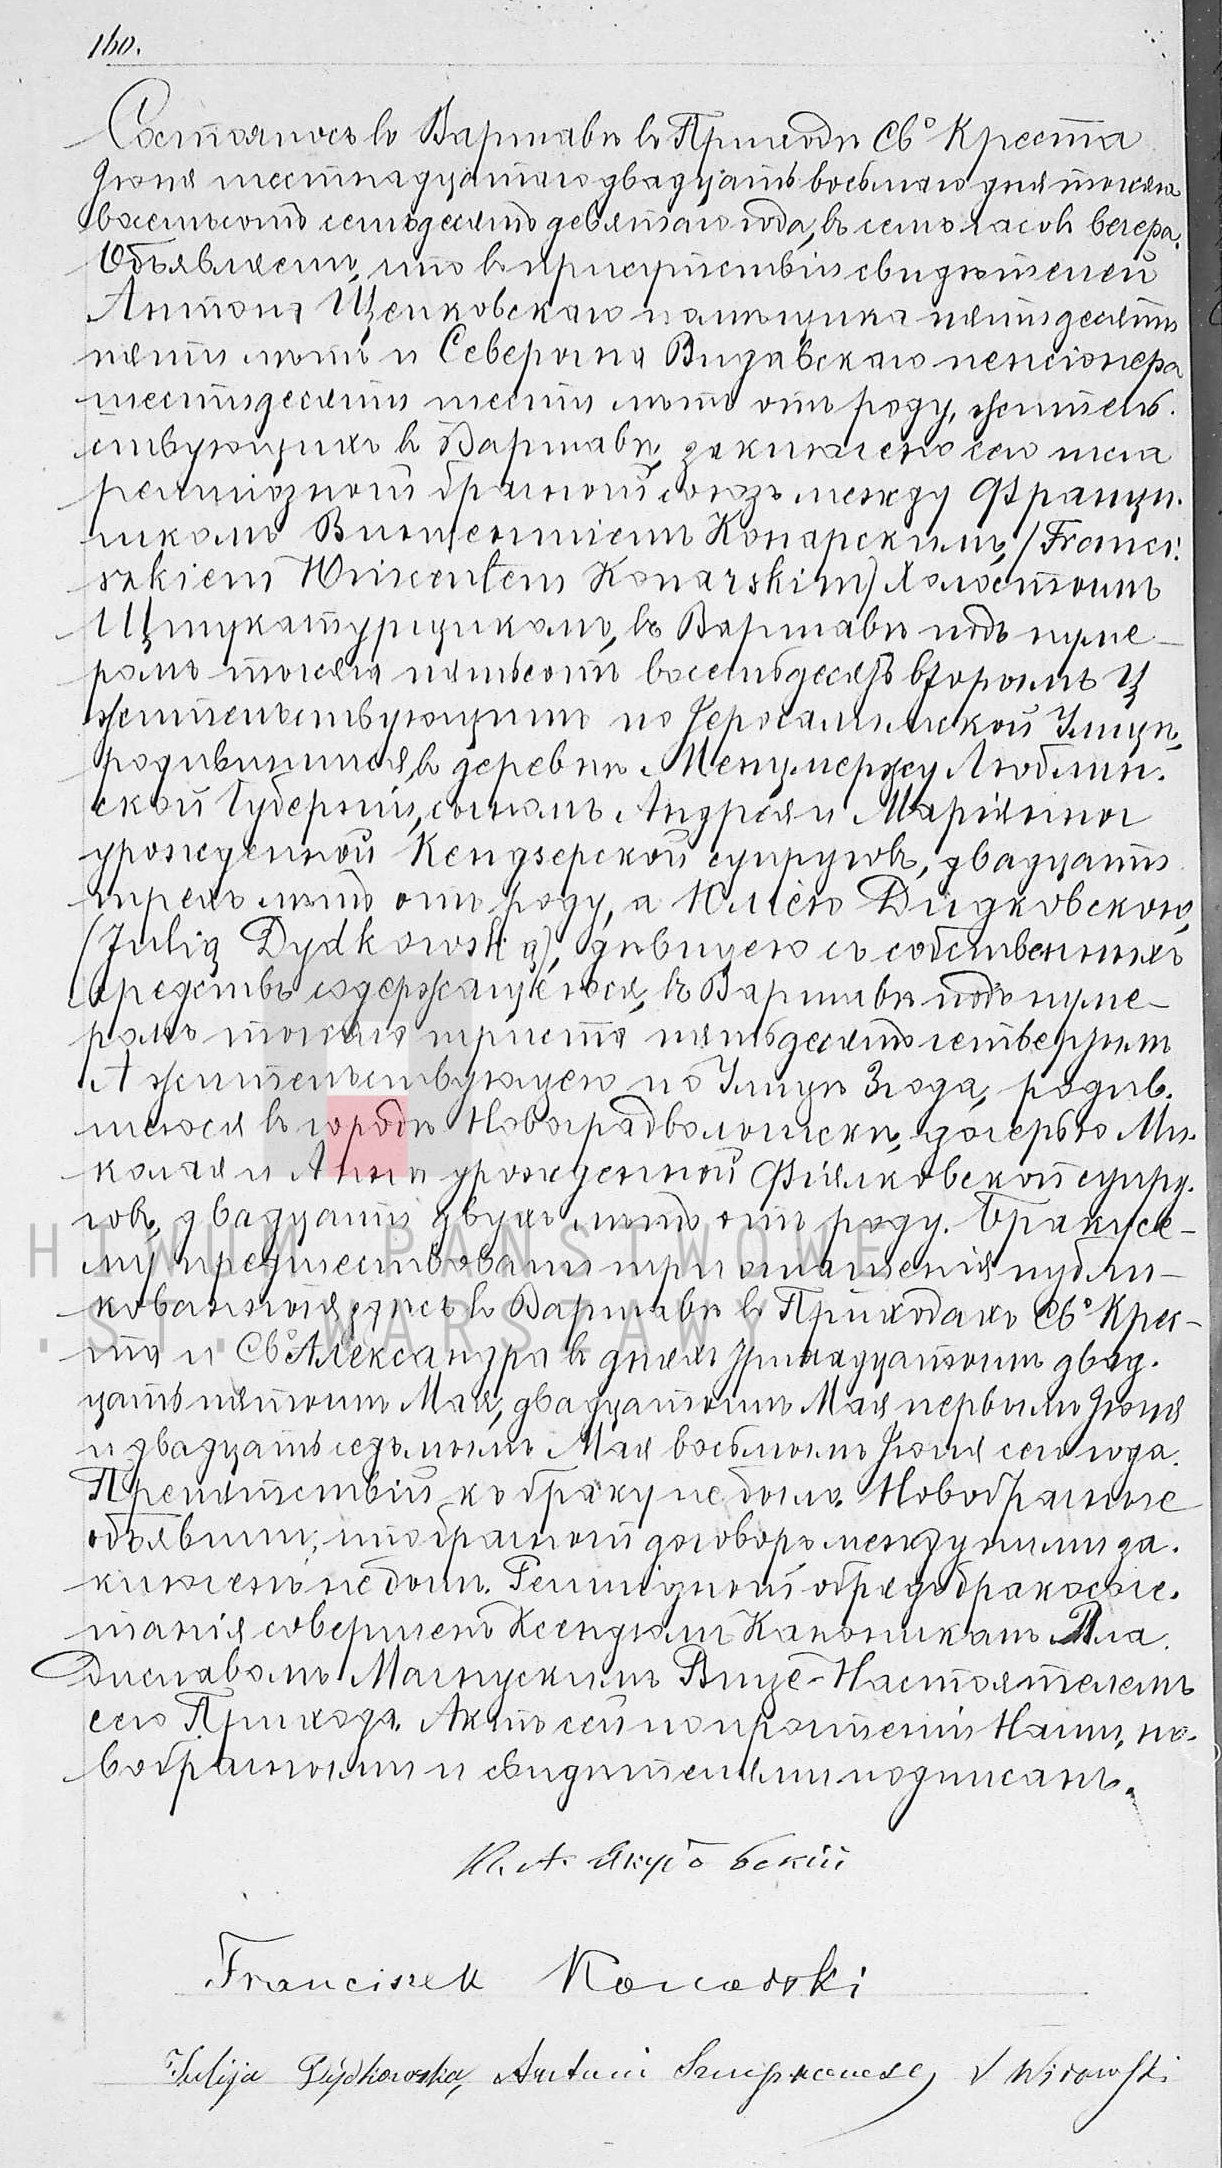 160.
Состоялось въ Варшавѣ въ Приходѣ Св° Креста
Іюня шестнадцатаго двадцать восьмаго дня тысяча
восемьсотъ семьдесятъ девятаго года, въ семь часовъ вечера.
Объявляемъ, что въ присутствіи свидѣтелей
Антона пятидесяти
пяти лѣтъ и Северина пенсіонера
шестидесяти шести лѣтъ отъ роду, житель.
ствующихъ въ Варшавѣ, заключенъ сего числа
религіозный брачный союзъ между Францы.
шкомъ Винцентіемъ Конарскимъ, (Franci.
szkiem Wincentem Konarskim) Холостымъ
Щтукатурщикомъ, въ Варшавѣ подъ нуме-
ромъ тысяча пятьсотъ восемьдесятъ вторымъ Ц
жительствующимъ по Іерозалимской Улицѣ,
родившимся въ деревнѣ Люблин.
ской Губерніи, сыномъ Андрея и Маріянны
урожденной Кендзерской супруговъ, двадцати
трехъ лѣтъ отъ роду, а Юліею Дидковскою,
(Julią Dydkowską), дѣвицею съ собственныхъ
средствъ содержащуюся, въ Варшавѣ подъ нуме-
ромъ тысяча триста пятьдесятъ четвертымъ
А жительствующею по Улицѣ Згода, родив.
шеюся въ городѣ Новоградволынскѣ, дочерью Ми.
колая и Анны урожденной Фіялковской супру.
говъ, двадцати двухъ лѣтъ отъ роду. Браку се-
му предшествовали три оглашенія публи-
кованныя здѣсь въ Варшавѣ въ Приходахъ Св° Крес-
та и Св° Александра въ дняхъ тринадцатомъ двад.
цать пятомъ Мая, двадцатомъ Мая первымъ Іюня
и двадцать седьмомъ Мая восьмомъ Іюня сего года.
Препятствій къ браку не было. Новобрачные
объявили, что брачный договоръ между ними за.
ключенъ не былъ. Религіозный обрядъ бракосоче.
танія совершенъ Ксендзомъ Каноникомъ Вла.
диславомъ Вице-Настоятелемъ
сего Прихода. Актъ сей по прочтеніи Нами, но.
вобрачными и свидѣтелями подписанъ.
К. А. Якубовскій
Franciszek Konarski
Julija Dydkowska, Antoni
HIWUM PAŃSTWOWE
. ST. WARSZAWY